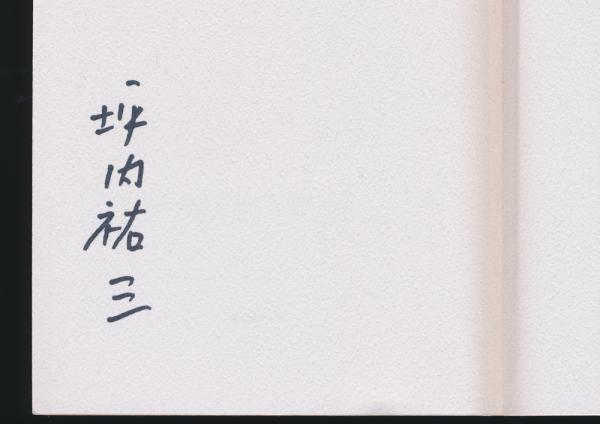 坪内祐三